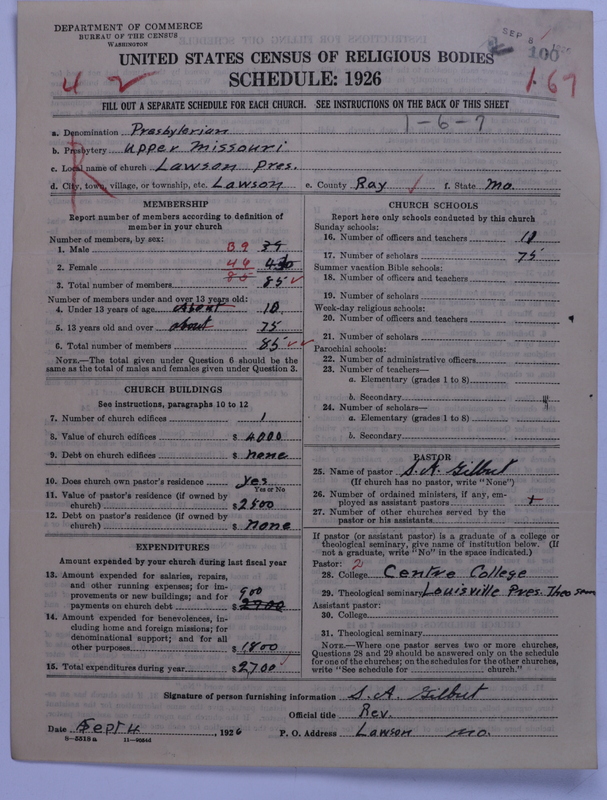 DEPARTMENT OF COMMERCE
BUREAU OF THE CENSUS
WASHINGTON
SEP 8
100
UNITED STATES CENSUS OF RELIGIOUS BODIES
SCHEDULE: 1926
4 2
1-69
FILL OUT A SEPARATE SCHEDULE FOR EACH CHURCH. SEE INSTRUCTIONS ON THE BACK OF THIS SHEET
1-6-7
a. Denomination Presbyterian
b. Presbytery Upper Missouri
c. Local name of church Lawson Pres.
d. City, town, village, or township, etc. Lawson e. County Ray f. State Mo.
R
MEMBERSHIP
Report number of members according to definition of member in your church
Number of members, by sex:
1. Male 39
2. Female 46
3. Total number of members 85 85
Number of members under and over 13 years old:
4. Under 13 years of age About 10
5. 13 years old and over about 75
6. Total number of members 85
NOTE.—The total given under Question 6 should be the
same as the total of males and females given under Question 3.
CHURCH BUILDINGS
See instructions, paragraphs 10 to 12
7. Number of church edifices 1
8. Value of church edifices $ 4000
9. Debt on church edifices $ none
10. Does church own pastor's residence yes
Yes or No
11. Value of pastor's residence (if owned by
church) $ 2500
12. Debt on pastor's residence (if owned by
church) $ none
EXPENDITURES
Amount expended by your church during last fiscal year
13. Amount expended for salaries, repairs,
and other running expenses; for im-
provements or new buildings; and for
payments on church debt $ 2700 900
14. Amount expended for benevolences, in-
cluding home and foreign missions; for
denominational support; and for all
other purposes $ 1800
15. Total expenditures during year $ 2700
CHURCH SCHOOLS
Report here only schools conducted by this church
Sunday schools:
16. Number of officers and teachers
17. Number of scholars 75
Summer vacation Bible schools:
18. Number of officers and teachers
19. Number of scholars
Week-day religious schools:
20. Number of officers and teachers
21. Number of scholars
Parochial schools:
22. Number of administrative officers
23. Number of teachers—
a. Elementary (grades 1 to 8)
b. Secondary
24. Number of scholars—
a. Elementary (grades 1 to 8)
b. Secondary
PASTOR
25. Name of pastor S. A. Gilbut
(If church has no pastor, write "None")
26. Number of ordained ministers, if any, em-
ployed as assistant pastors
27. Number of other churches served by the
pastor or his assistants
If pastor (or assistant pastor) is a graduate of a college or
theological seminary, give name of institution below. (If
not a graduate, write "No" in the space indicated.)
Pastor: 2
28. College Centre College
29. Theological seminary Louisville Pres. Theo sem
Assistant pastor:
30. College
31. Theological seminary
NOTE.—Where one pastor serves two or more churches,
Questions 28 and 29 should be answered only on the schedule
for one of the churches; on the schedules for the other churches,
write "See schedule for church."
Signature of person furnishing information S. A. Gilbut
Official title Rev.
Date Sept 4, 1926 P. O. Address Lawson Mo.
8-5518a 11-90544